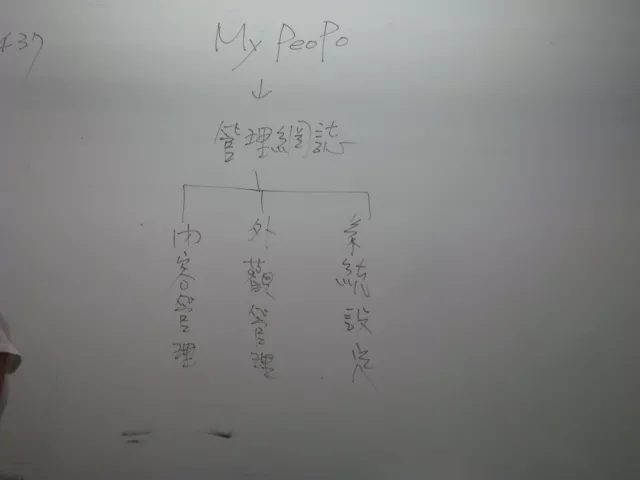 My PeoPo
↓
管理網誌
內容管理
外觀管理
系統設定